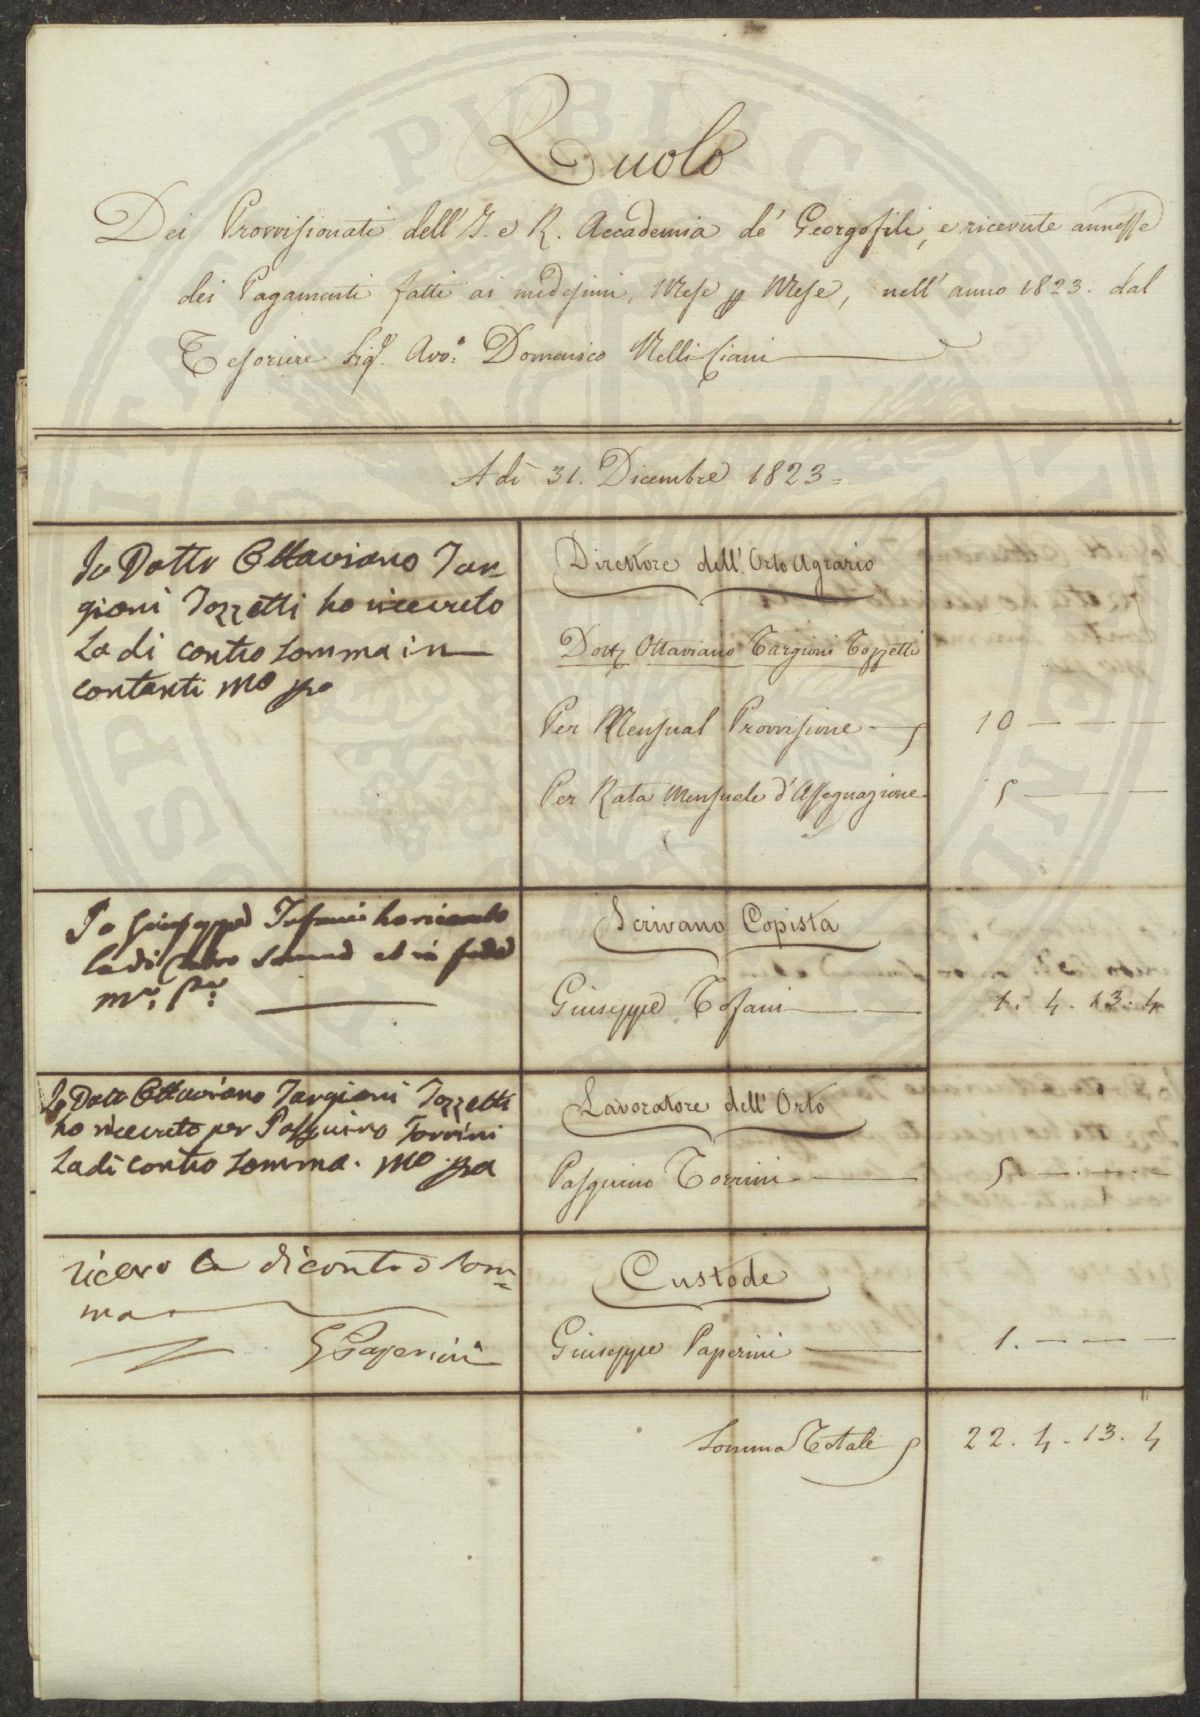 Ruolo
Dei Provvisionati dell'I. e R. Accademia de' Georgofili, e ricevute annesse
dei Pagamenti fatti ai medesimi, Mese p Mese, nell'anno 1823. dal
Tesoriere Sigr. Avvo. Domenico Nelli Ciani
A dì 31. Dicembre 1823=
Io Dottr Ottaviano Tar-
gioni Tozzetti ho ricevuto
La di contro somma in
contanti mo ppa
Direttore dell'Orto Agrario
Dottr Ottaviano Targioni Tozzetti
Per Mensual Provvisione 10 — — —
Per Rata Mensuale d'Assegnazione 5 — — —
Io Giuseppe Tofani ho ricevuto
la di Contro Somma ed in fede
mo. ppa.
Scrivano Copista
Giuseppe Tofani 1. 4. 13. 4
Io Dottr Ottaviano Targioni Tozzetti
ho ricevuto per Pasquino Torrini
La di contro somma. mo ppa
Lavoratore dell'Orto
Pasquino Torrini 5. — — —
ricevo la di contro som-
ma
G Paperini
Custode
Giuseppe Paperini 1. — — —
Somma Totale 22. 4. 13. 4